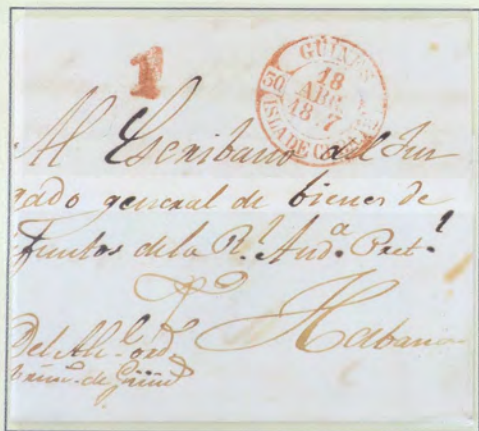 1
GÜINES
18
ABR.
18 7
30
ISLA DE CUBA
Al Escribano del Juz
gado general de bienes de
funtos de la Rl. Auda. Pretl.
Habana
Del Alc. ord.